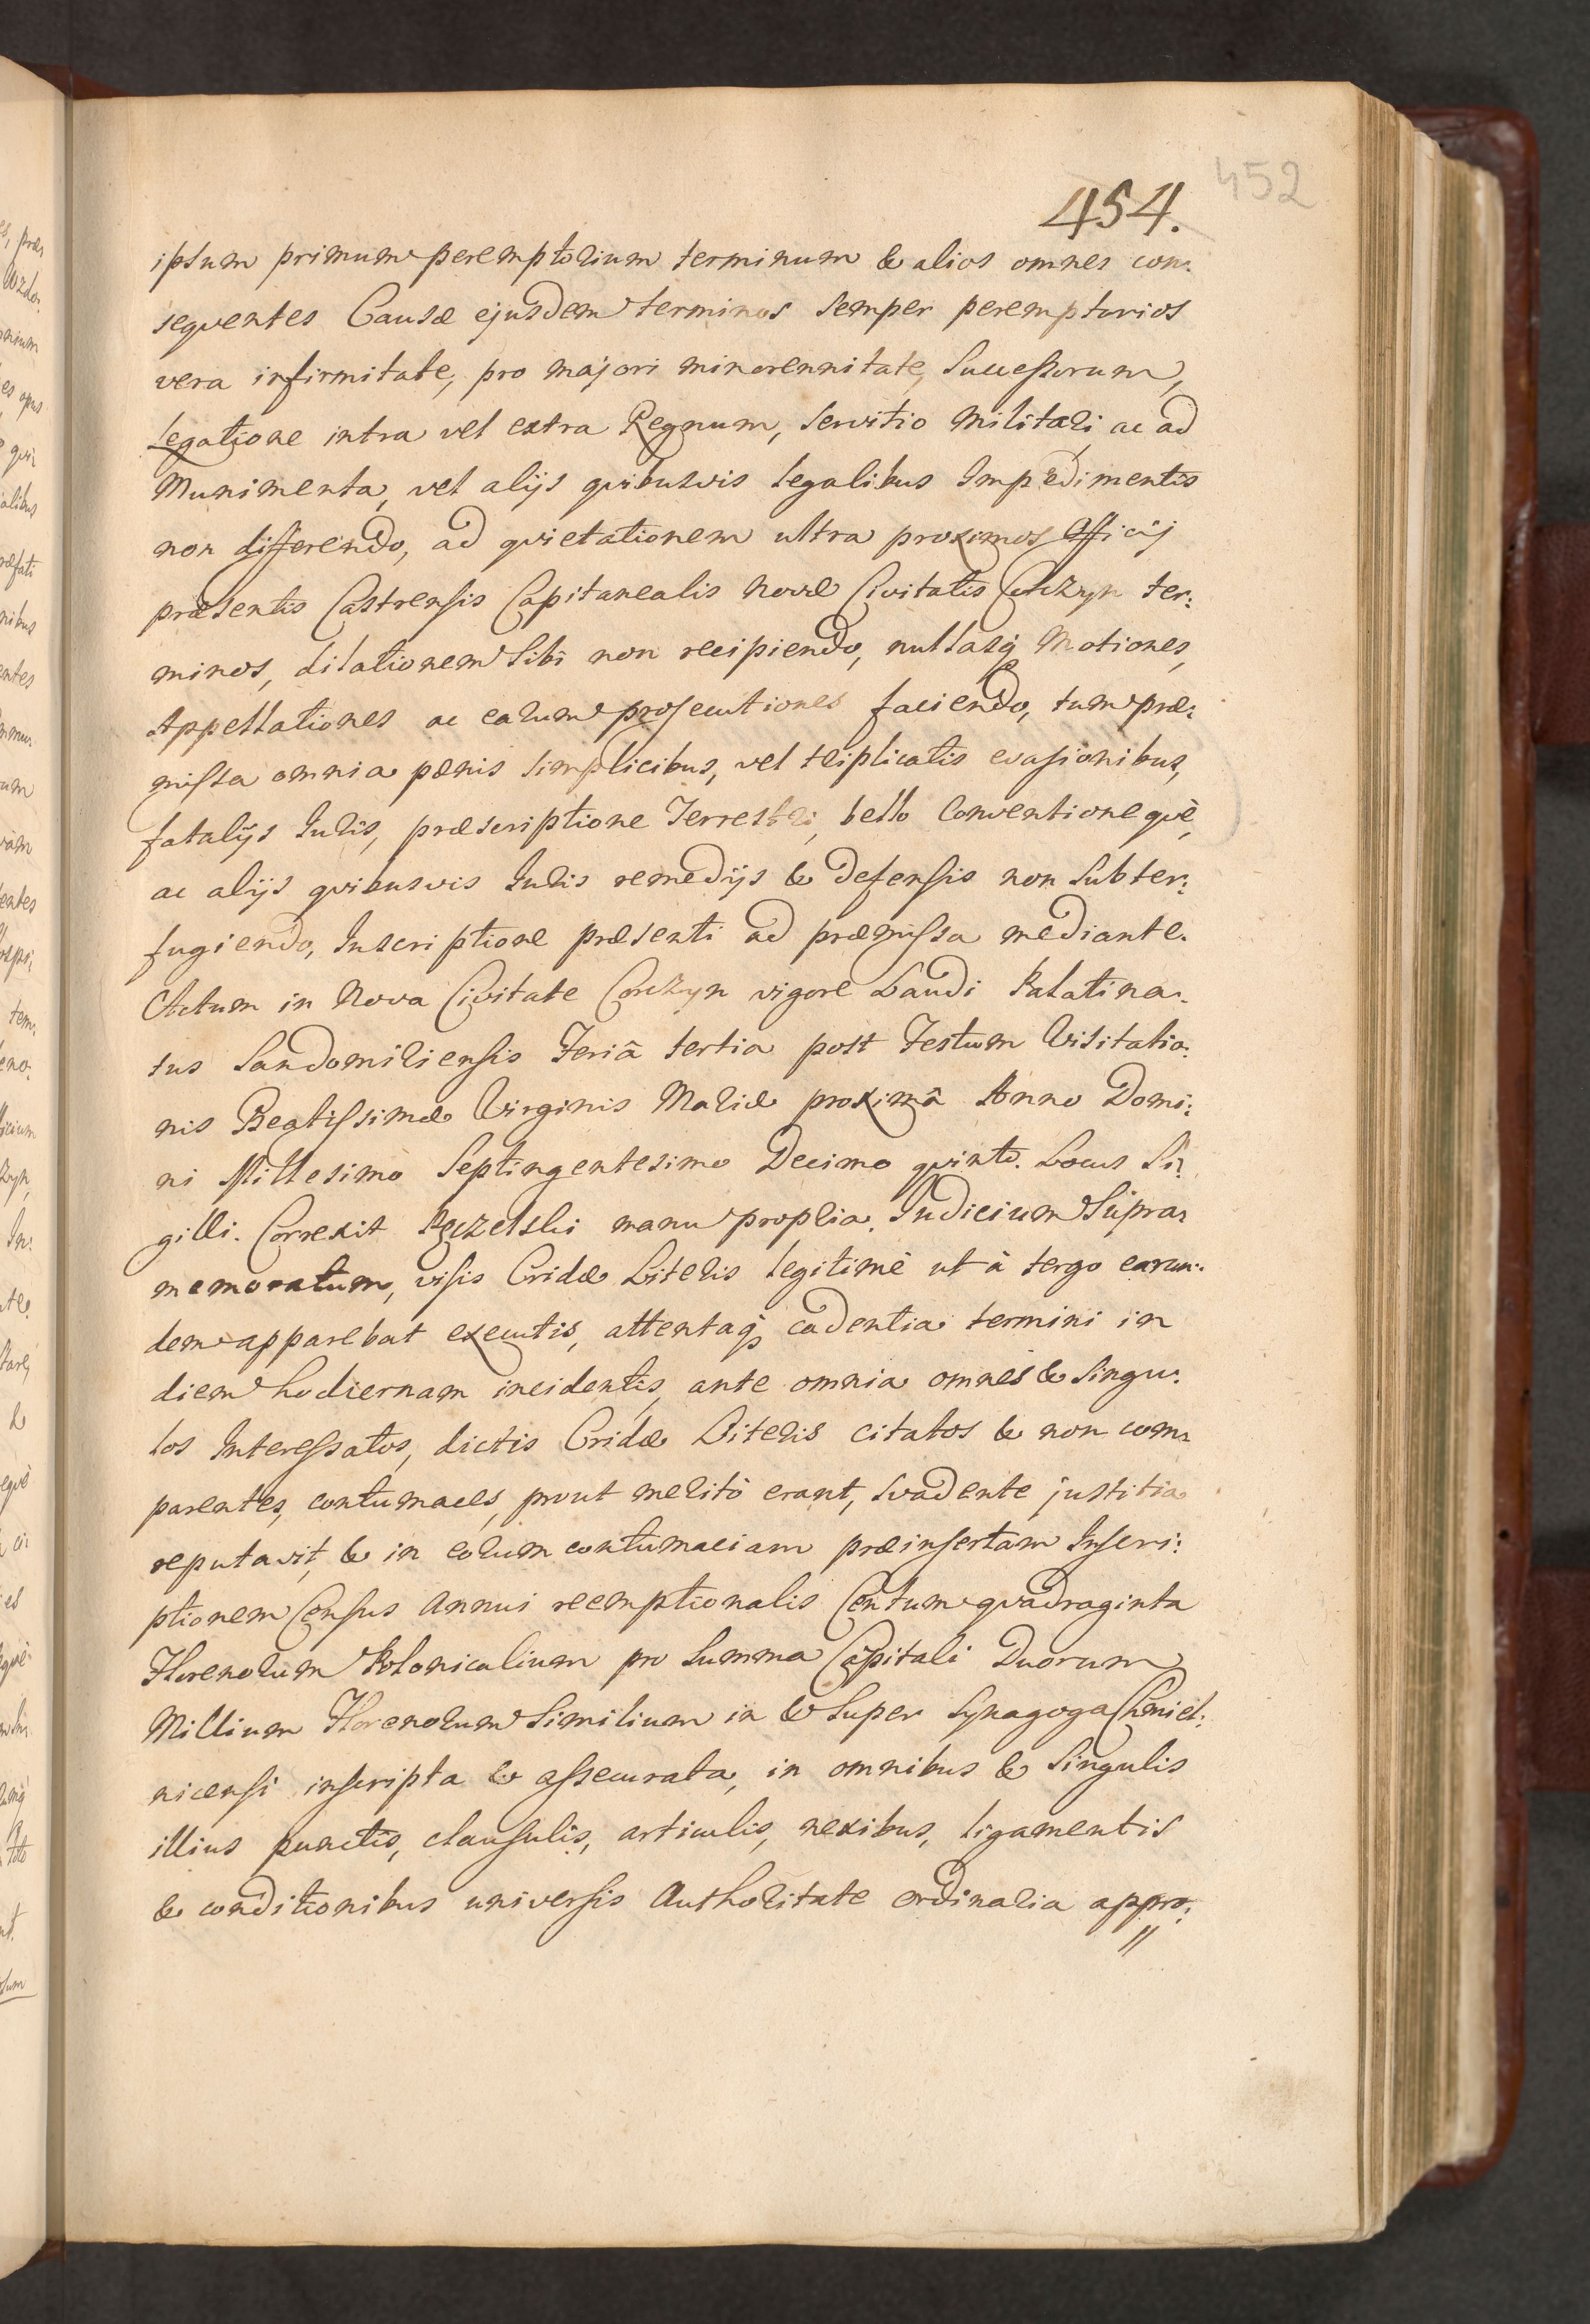 452
454.
ipsum primum peremptorium terminum & alios omnes con:
seqventes Causæ ejusdem terminos semper peremptorios
vera infirmitate, pro majori minorennitate, Successorum,
Legatione intra vel extra Regnum, Servitio Militari ac ad
Munimenta, vel alijs qvibusvis legalibus Impedimentis
non differendo, ad qvietationem ultra proximos Officij
præsentis Castrensis Capitanealis Novæ Civitatis Corczyn ter:
minos, dilationem Sibi non recipiendo, nullasq; Motiones,
Appellationes ac earum prosecutiones faciendo, tum præ:
missa omnia pænis simplicibus, vel triplicatis evasionibus,
fatalijs Juris, præscriptione Terrestri, bello Conventioneqvè,
ac alijs qvibusvis Juris remedijs & defensis non Subter:
fugiendo, Inscriptione præsenti ad præmissa mediante.
Actum in Nova Civitate Corczyn vigore Laudi Palatina:
tus Sandomiriensis Feriâ tertia post Festum Visitatio:
nis Beatissimæ Virginis Mariæ proximâ Anno Domi:
ni Millesimo Septingentesimo Decimo qvinto. Locus Si:
gilli. Correxit manu propria. Judicium Supra:
memoratum, visis Cridæ Literis legitimè ut à tergo earun:
dem apparebat executis, attentaq; cadentia termini in
diem hodiernam incidentis, ante omnia omnes & Singu:
los Interessatos, dictis Cridæ Literis citatos & non com:
parentes, contumaces, prout meritò erant, svadente justitia
reputavit, & in eorum contumaciam præinsertam Inscri:
ptionem Census Annui reemptionalis Centum qvadraginta
Florenorum Polonicalium pro Summa Capitali Duorum
Millium Florenorum Similium in & Super Synagoga Chmiel:
nicensi inscripta & assecurata, in omnibus & Singulis
illius punctis, clausulis, articulis, nexibus, ligamentis
& conditionibus universis Authoritate ordinaria appro: